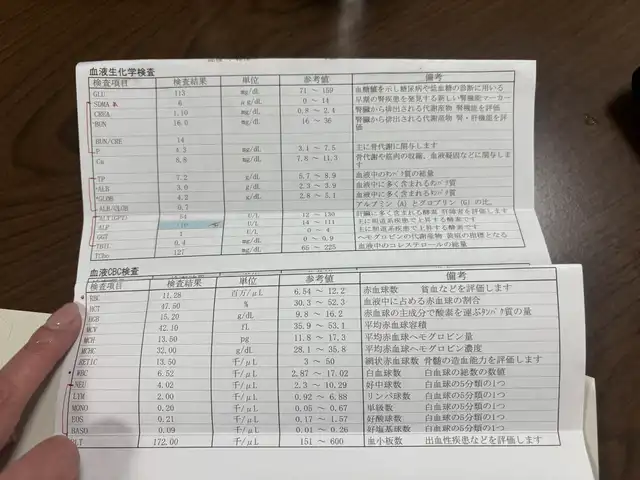 血液生化学検査
検査項目 検査結果 単位 参考値 備考
GLU 113 mg/dL 71 ～ 159 血糖値を示し糖尿病や低血糖の診断に用いる
SDMA 6 μg/dL 0 ～ 14 早期の腎疾患を発見する新しい腎機能マーカー
CREA 1.10 mg/dL 0.8 ～ 2.4 腎臓から排出される代謝産物 腎機能を評価
BUN 16.0 mg/dL 16 ～ 36 腎臓から排出される代謝産物 腎・肝機能を評価
BUN/CRE 14
P 4.3 mg/dL 3.1 ～ 7.5 主に骨代謝に関与します
Ca 8.8 mg/dL 7.8 ～ 11.3 骨代謝や筋肉の収縮、血液凝固などに関与します
*TP 7.2 g/dL 5.7 ～ 8.9 血液中のﾀﾝﾊﾟｸ質の総量
*ALB 3.0 g/dL 2.3 ～ 3.9 血液中に多く含まれるﾀﾝﾊﾟｸ質
*GLOB 4.2 g/dL 2.8 ～ 5.1 血液中に多く含まれるﾀﾝﾊﾟｸ質
ALB/GLOB 0.7 アルブミン（A）とグロブリン（G）の比
ALT(GPT) 84 U/L 12 ～ 130 肝臓に多く含まれる酵素 肝障害を評価します
ALP U/L 14 ～ 111 主に胆道系疾患で上昇する酵素
GGT U/L 0 ～ 4 主に胆道系疾患で上昇する酵素
TBIL 0.4 mg/dL 0 ～ 0.9 ヘモグロビンの代謝産物 黄疸の指標となる
TCho 127 mg/dL 65 ～ 225 血液中のコレステロールの総量
血液CBC検査
検査項目 検査結果 単位 参考値 備考
RBC 11.28 百万/μL 6.54 ～ 12.2 赤血球数 貧血などを評価します
HCT 47.50 % 30.3 ～ 52.3 血液中に占める赤血球の割合
HGB 15.20 g/dL 9.8 ～ 16.2 赤血球の主成分で酸素を運ぶﾀﾝﾊﾟｸ質の量
MCV 42.10 fL 35.9 ～ 53.1 平均赤血球容積
MCH 13.50 pg 11.8 ～ 17.3 平均赤血球ヘモグロビン量
MCHC 32.00 g/dL 28.1 ～ 35.8 平均赤血球ヘモグロビン濃度
RETIC 13.50 千/μL 3 ～ 50 網状赤血球数 骨髄の造血能力を評価します
WBC 6.52 千/μL 2.87 ～ 17.02 白血球数 白血球の総数の数値
NEU 4.02 千/μL 2.3 ～ 10.29 好中球数 白血球の5分類の1つ
LYM 2.00 千/μL 0.92 ～ 6.88 リンパ球数 白血球の5分類の1つ
MONO 0.20 千/μL 0.05 ～ 0.67 単球数 白血球の5分類の1つ
EOS 0.21 千/μL 0.17 ～ 1.57 好酸球数 白血球の5分類の1つ
BASO 0.09 千/μL 0.01 ～ 0.26 好塩基球数 白血球の5分類の1つ
PLT 172.00 千/μL 151 ～ 600 血小板数 出血性疾患などを評価します